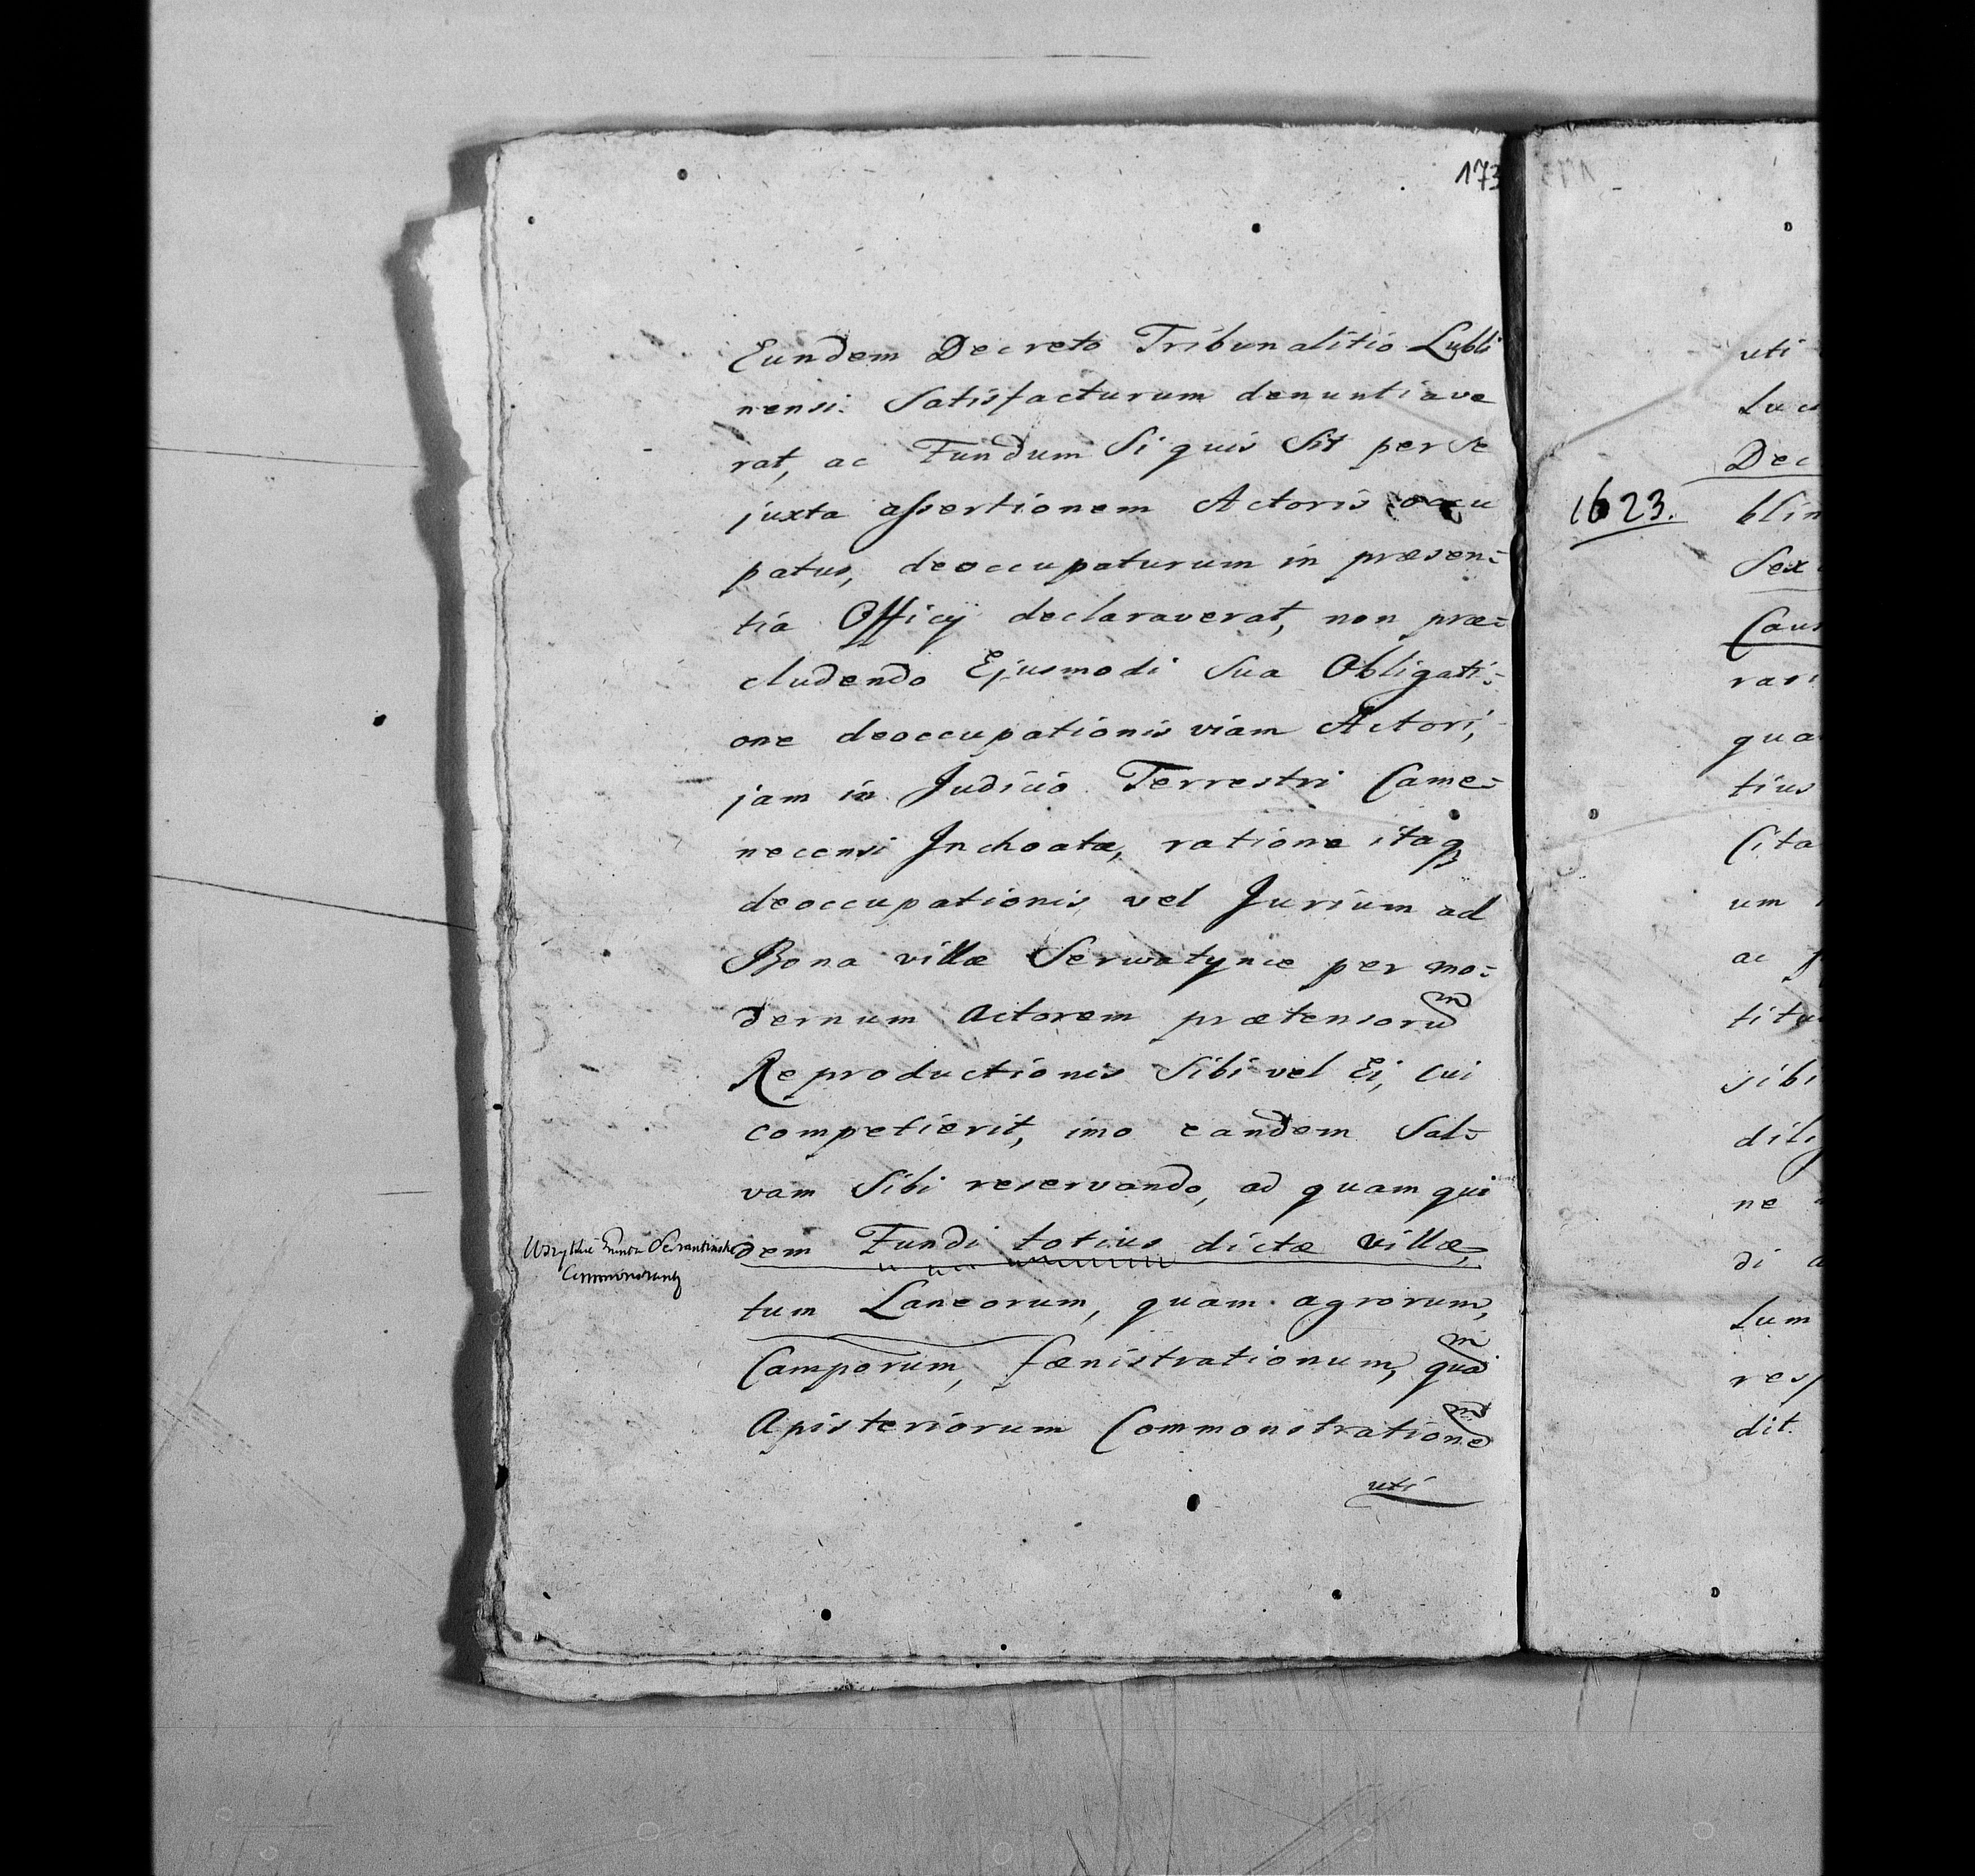 173
Eundem Decreto Tribunalitio Lubli
nensi: Satisfacturum denuntiave
rat, ac Fundum Si quis Sit per se
juxta assertionem Actoris occu
patus, deoccupaturum in præsen=
tia Officÿ declaraverat, non præ=
cludendo Ejusmodi Sua Obligati=
one deoccupationis viam Actori,
jam in Judicio Terrestri Came=
necensi Inchoatæ, ratione itaq
deoccupationis vel Jurium ad
Bona villæ Serwatynce per mo=
dernum Actorem prætensorum
Reproductionis Sibi vel Ei, cui
competierit, imo eandem Sal=
vam Sibi reservando, ad quam qui
dem Fundi totius dictæ villæ,
tum Laneorum, quam agrorum,
Camporum, fænistrationum, quam
Apisteriorum Commonstrationem
uti
uti
Dec
1623.
blin
Sex
Caus
rari
qua
tius
Cita
um
ac
titu
sibi
dili
ne
di
lum
resp
dit.